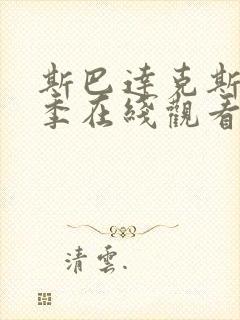 斯巴達克斯
季在綫觀看
清雲.